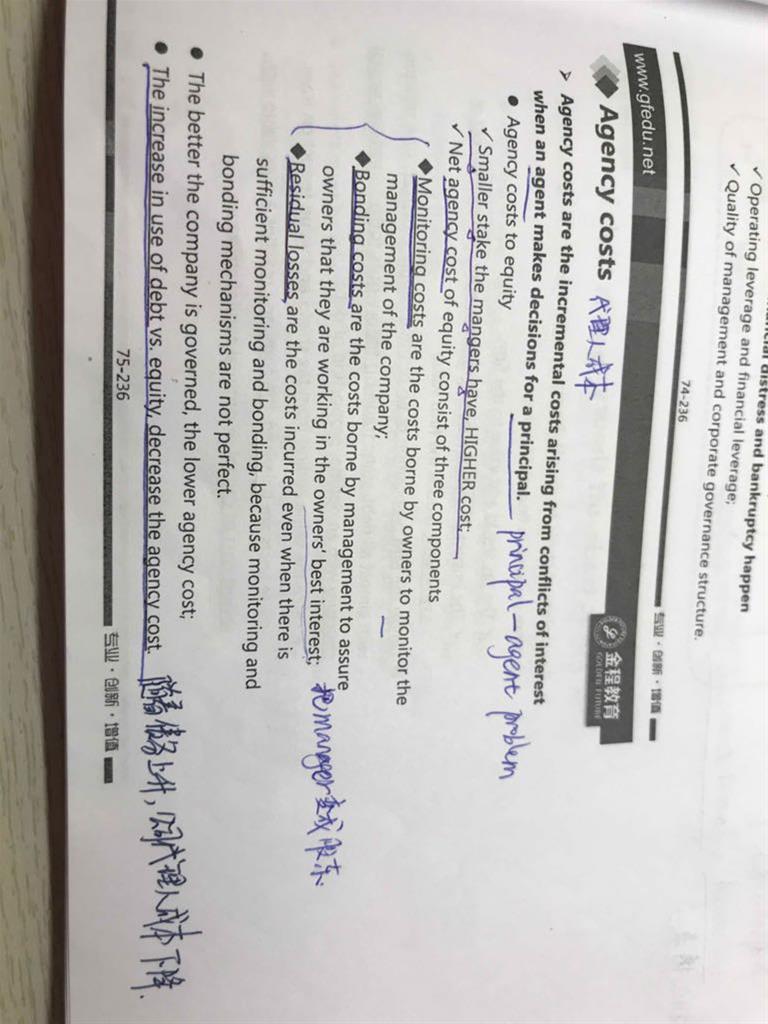 ncial distress and bankruptcy happen
✓ Operating leverage and financial leverage;
✓ Quality of management and corporate governance structure.
74-236
专业·创新·增值
www.gfedu.net
金程教育
GOLDEN FUTURE
Agency costs 代理人成本
➢ Agency costs are the incremental costs arising from conflicts of interest
when an agent makes decisions for a principal. principal-agent problem
● Agency costs to equity
✓ Smaller stake the mangers have, HIGHER cost;
✓ Net agency cost of equity consist of three components
◆ Monitoring costs are the costs borne by owners to monitor the
management of the company;
◆ Bonding costs are the costs borne by management to assure
owners that they are working in the owners' best interest; 把manager变成股东
◆ Residual losses are the costs incurred even when there is
sufficient monitoring and bonding, because monitoring and
bonding mechanisms are not perfect.
● The better the company is governed, the lower agency cost;
● The increase in use of debt vs. equity, decrease the agency cost. 随着债务上升，公司代理人成本下降.
75-236
专业·创新·增值